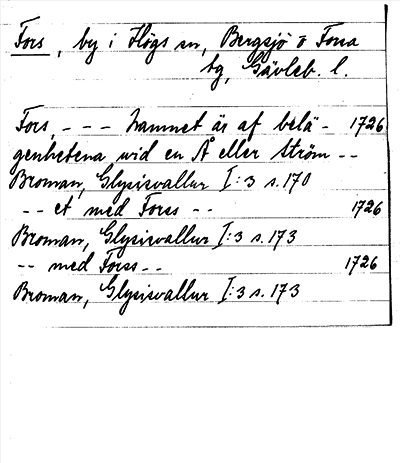 Fors, by i Högs sn, Bergsjö o Forsa
tg, Gävleb. l.
Fors, - - - namnet är af belä- 1726
genhetena wid en Å eller ström - -
Broman, Glysisvallur I:3 s. 170
- - et med Forss - - 1726
Broman, Glysisvallur I:3 s. 173
- - med Forss - - 1726
Broman, Glysisvallur I:3 s. 173